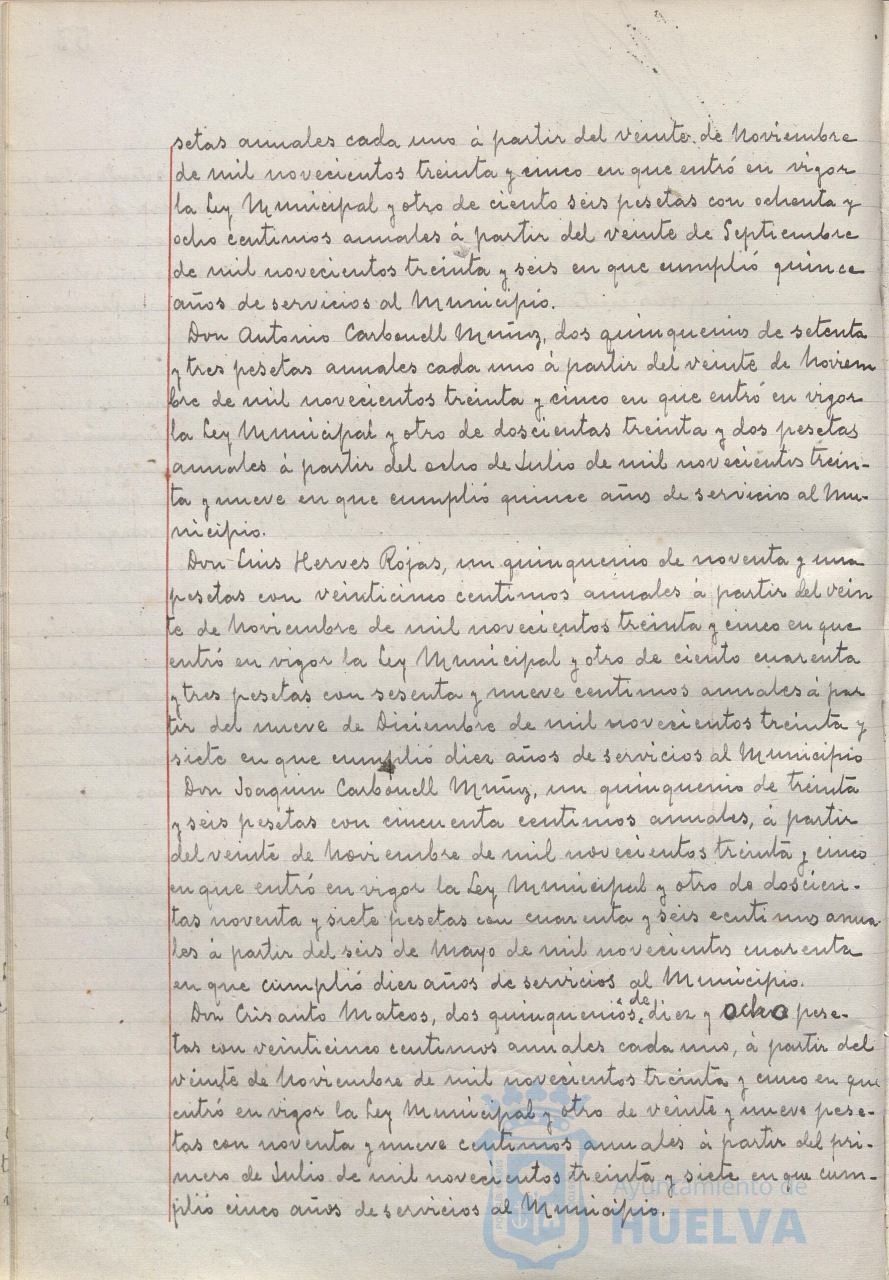 setas annales cada uno á partir del veinte de Noviembre
de mil novecientos treinta y cinco en que entró en vigor
la Ley Municipal y otro de ciento seis pesetas con ochenta y
ocho centimos anuales á partir del veinte de Septiembre
de mil novecientos treinta y seis en que cumplió quince
años de servicios al Municipio.
Don Antonio Carbonell Muñoz, dos quinquenios de setenta
y tres pesetas anuales cada uno á partir del veinte de Noviem
bre de mil novecientos treinta y cinco en que entró en vigor
la Ley Municipal y otro de doscientas treinta y dos pesetas
anuales á partir del ocho de Julio de mil novecientos trein-
ta y nueve en que cumplió quince años de servicios al Mu-
nicipio.
Don Luis Herves Rojas, un quinquenio de noventa y una
pesetas con veinticinco centimos anuales á partir del vein
te de Noviembre de mil novecientos treinta y cinco en que
entró en vigor la Ley Municipal y otro de ciento cuarenta
y tres pesetas con sesenta y nueve centimos anuales á par
tir del nueve de Diciembre de mil novecientos treinta y
siete en que cumplió diez años de servicios al Municipio
Don Joaquin Carbonell Muñoz, un quinquenio de treinta
y seis pesetas con cincuenta centimos anuales, á partir
del veinte de Noviembre de mil novecientos treinta y cinco
en que entró en vigor la Ley Municipal y otro de doscien-
tas noventa y siete pesetas con cuarenta y seis centimos anua
les á partir del seis de Mayo de mil novecientos cuarenta
en que cumplió diez años de servicios al Municipio.
Don Crisanto Mateos, dos quinquenios de diez y ocho pese-
tas con veinticinco centimos anuales cada uno, á partir del
veinte de Noviembre de mil novecientos treinta y cinco en que
entró en vigor la Ley Municipal y otro de veinte y nueve pese-
tas con noventa y nueve centimos anuales á partir del pri-
mero de Julio de mil novecientos treinta y siete en que cum-
plió cinco años de servicios al Municipio.
Ayuntamiento de
HUELVA